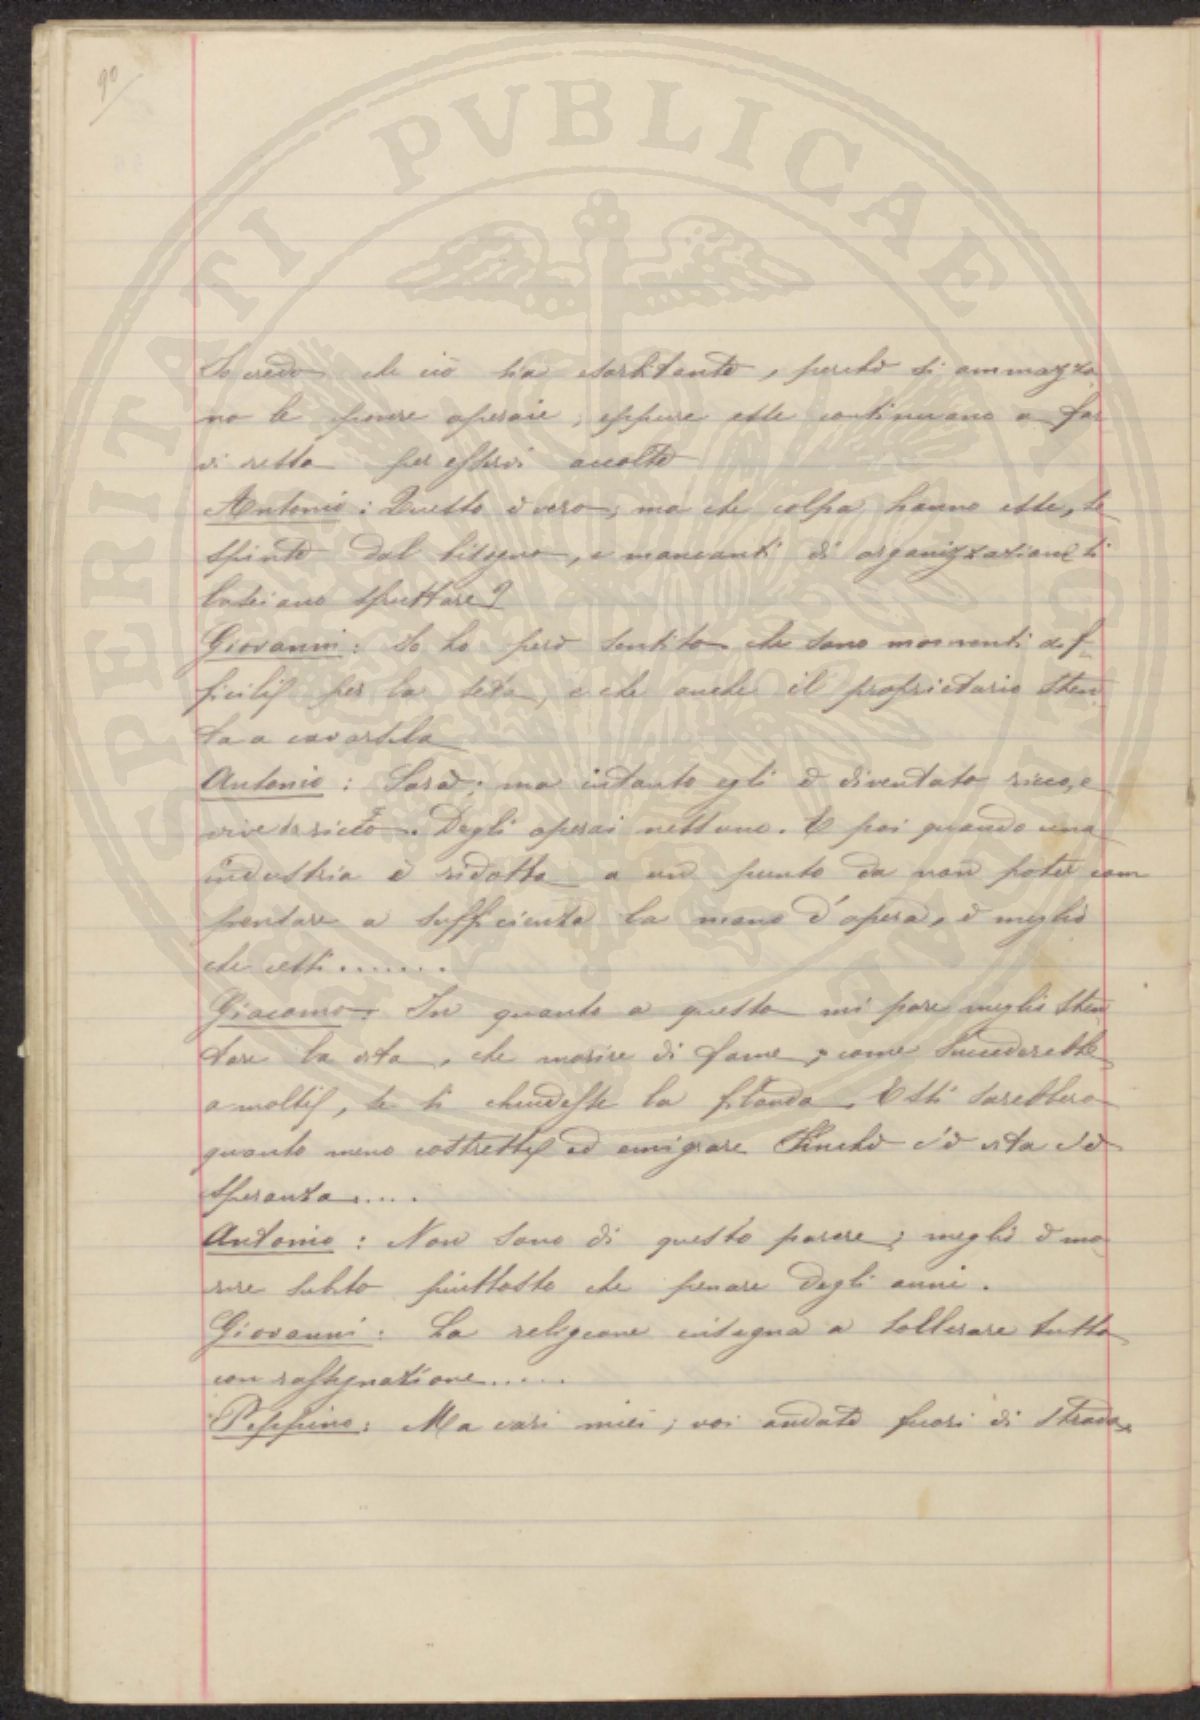 90
Io credo che ciò sia esorbitante, perchè si ammazza
no le povere operaie, eppure esse continuano a far
vi ressa per esservi accolte
Antonio: Questo è vero; ma che colpa hanno esse, se
spinte dal bisogno, e mancanti di organizzazione si
lasciano sfruttare?
Giovanni: Io ho però sentito che sono momenti dif
ficili per la seta, e che anche il proprietario sten
ta a cavarsela
Antonio: Sarà; ma intanto egli è diventato ricco, e
vive da ricco. Degli operai nessuno. E poi quando una
industria è ridotta a un punto da non poter com
pensare a sufficienza la mano d'opera, è meglio
che cessi.......
Giacomo: In quanto a questo mi pare meglio sten
tare la vita, che morire di fame, come succederebbe
a molti, se si chiudesse la filanda. Essi sarebbero
quanto meno costretti ad emigrare Finchè c'è vita c'è
speranza.....
Antonio: Non sono di questo parere; meglio è mo
rire subito piuttosto che penare degli anni.
Giovanni: La religione insegna a tollerare tutto
con rassegnazione.....
Peppino: Ma cari miei; voi andate fuori di strada.
SPERITATI PVBLICAE